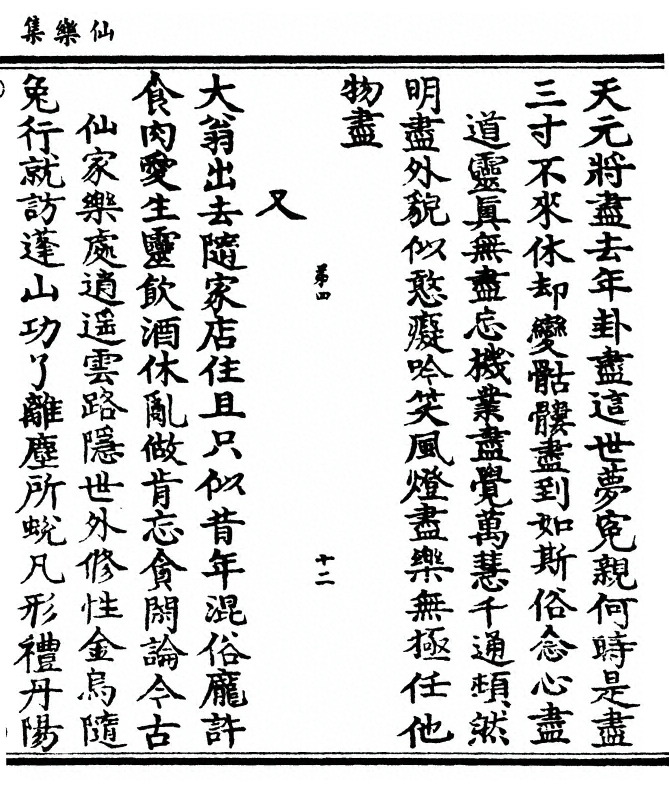 仙樂集
天元將盡去年卦盡這世夢寃親何時是盡
三寸不來休却變骷髏盡到如斯俗念心盡
道靈眞無盡忘機業盡覺萬慧千通頽然
明盡外貌似憨癡吟笑風燈盡樂無極任他
物盡
第四
十二
又
大翁出去隨家店住且只似昔年混俗龐許
食肉愛生靈飲酒休亂做肯忘貪閙論今古
仙家樂處逍遥雲路隱世外修性金烏隨
兔行就訪蓬山功了離塵所蛻凡形禮丹陽